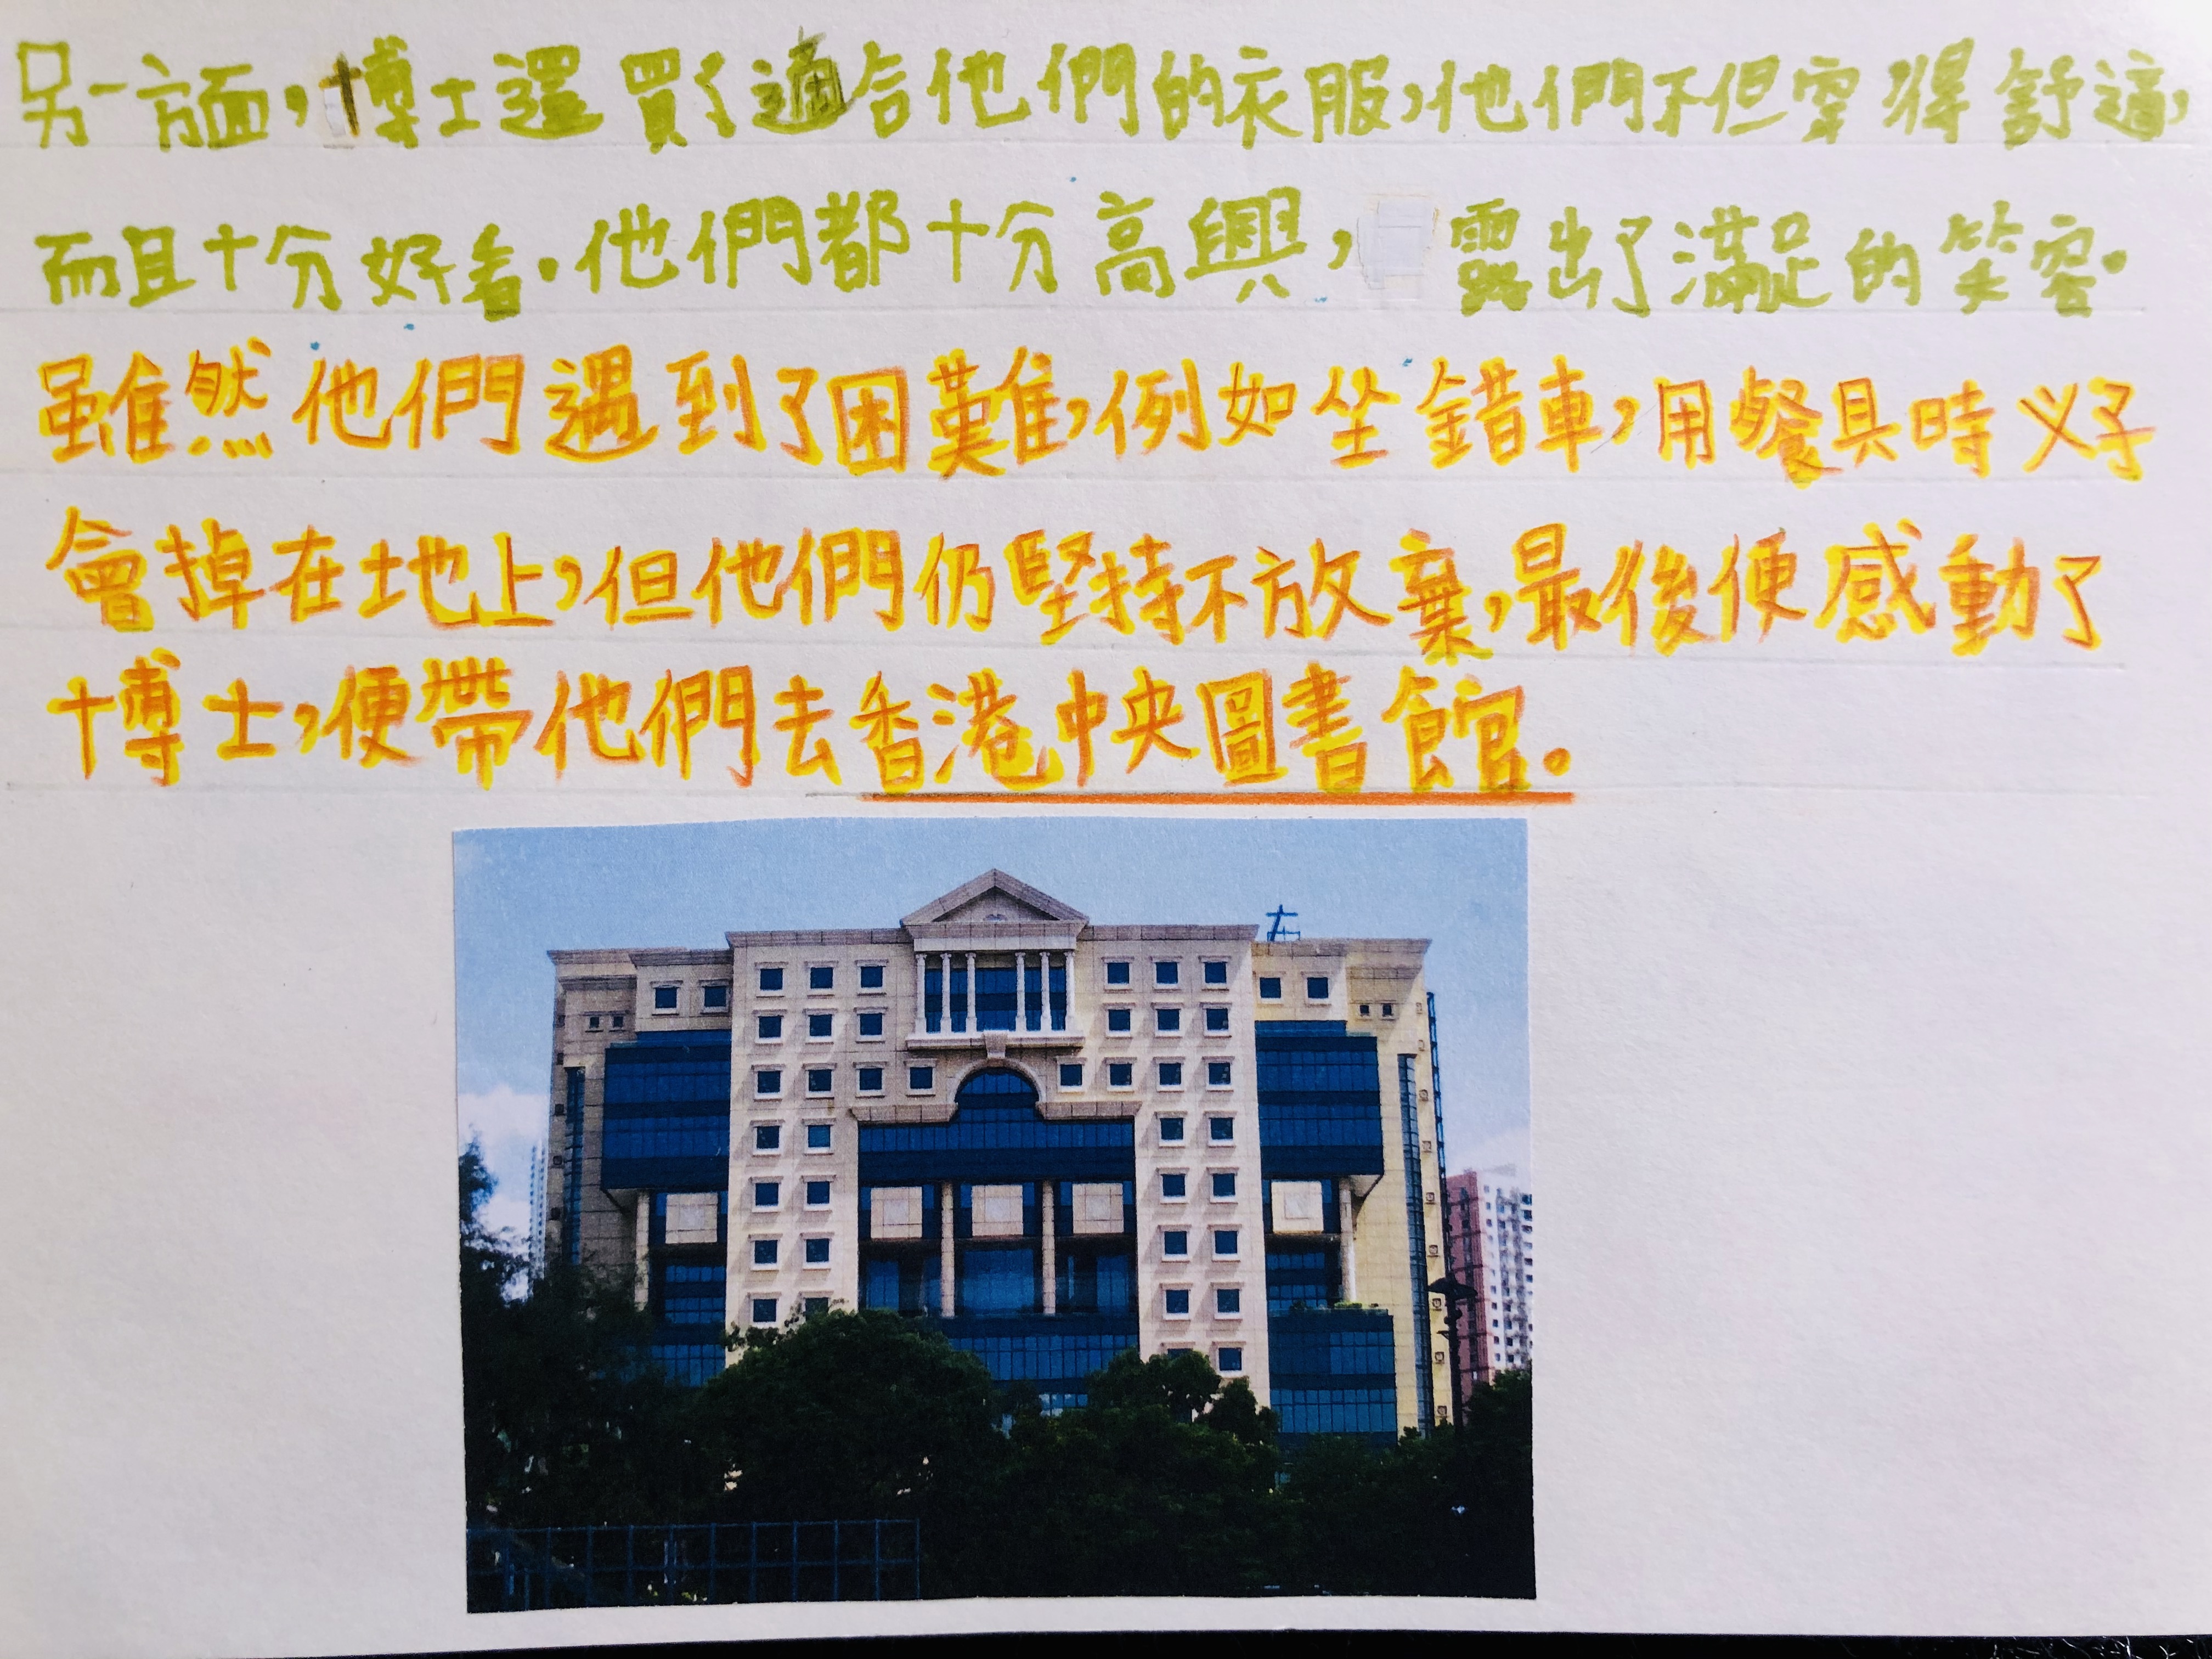 另一方面，博士還買了適合他們的衣服，他們不但穿得舒適，
而且十分好看。他們都十分高興，露出了滿足的笑容。
雖然他們遇到了困難，例如坐錯車，用餐具時必
會掉在地上，但他們仍堅持不放棄，最後便感動了
博士，便帶他們去香港中央圖書館。